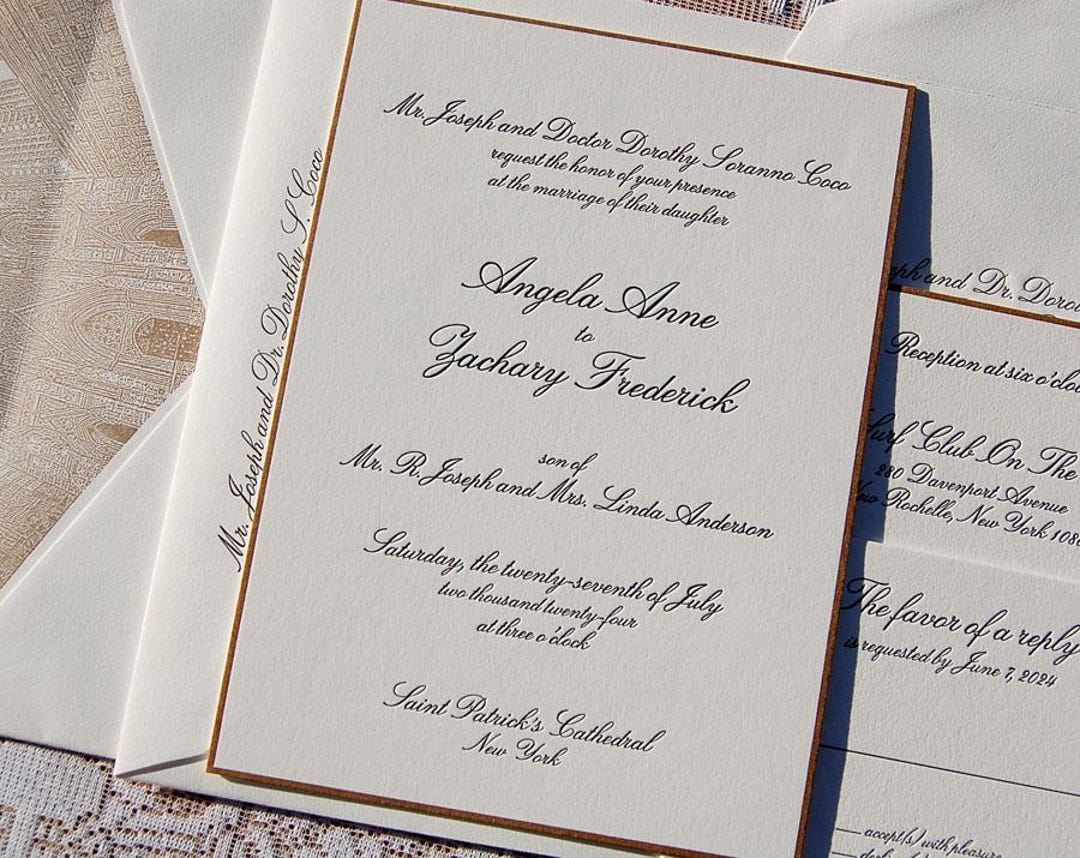 Mr. Joseph and Doctor Dorothy Soranno Coco
request the honor of your presence
at the marriage of their daughter
Angela Anne
to
Zachary Frederick
son of
Mr. R. Joseph and Mrs. Linda Anderson
Saturday, the twenty-seventh of July
two thousand twenty-four
at three o'clock
Saint Patrick's Cathedral
New York
Mr. Joseph and Dr. Dorothy S. Coco
and Dr.
Reception at six
Surf Club On The
280 Davenport Avenue
New Rochelle, New York
The favor of a reply
is requested by June 7, 2024
accept(s) with pleasure